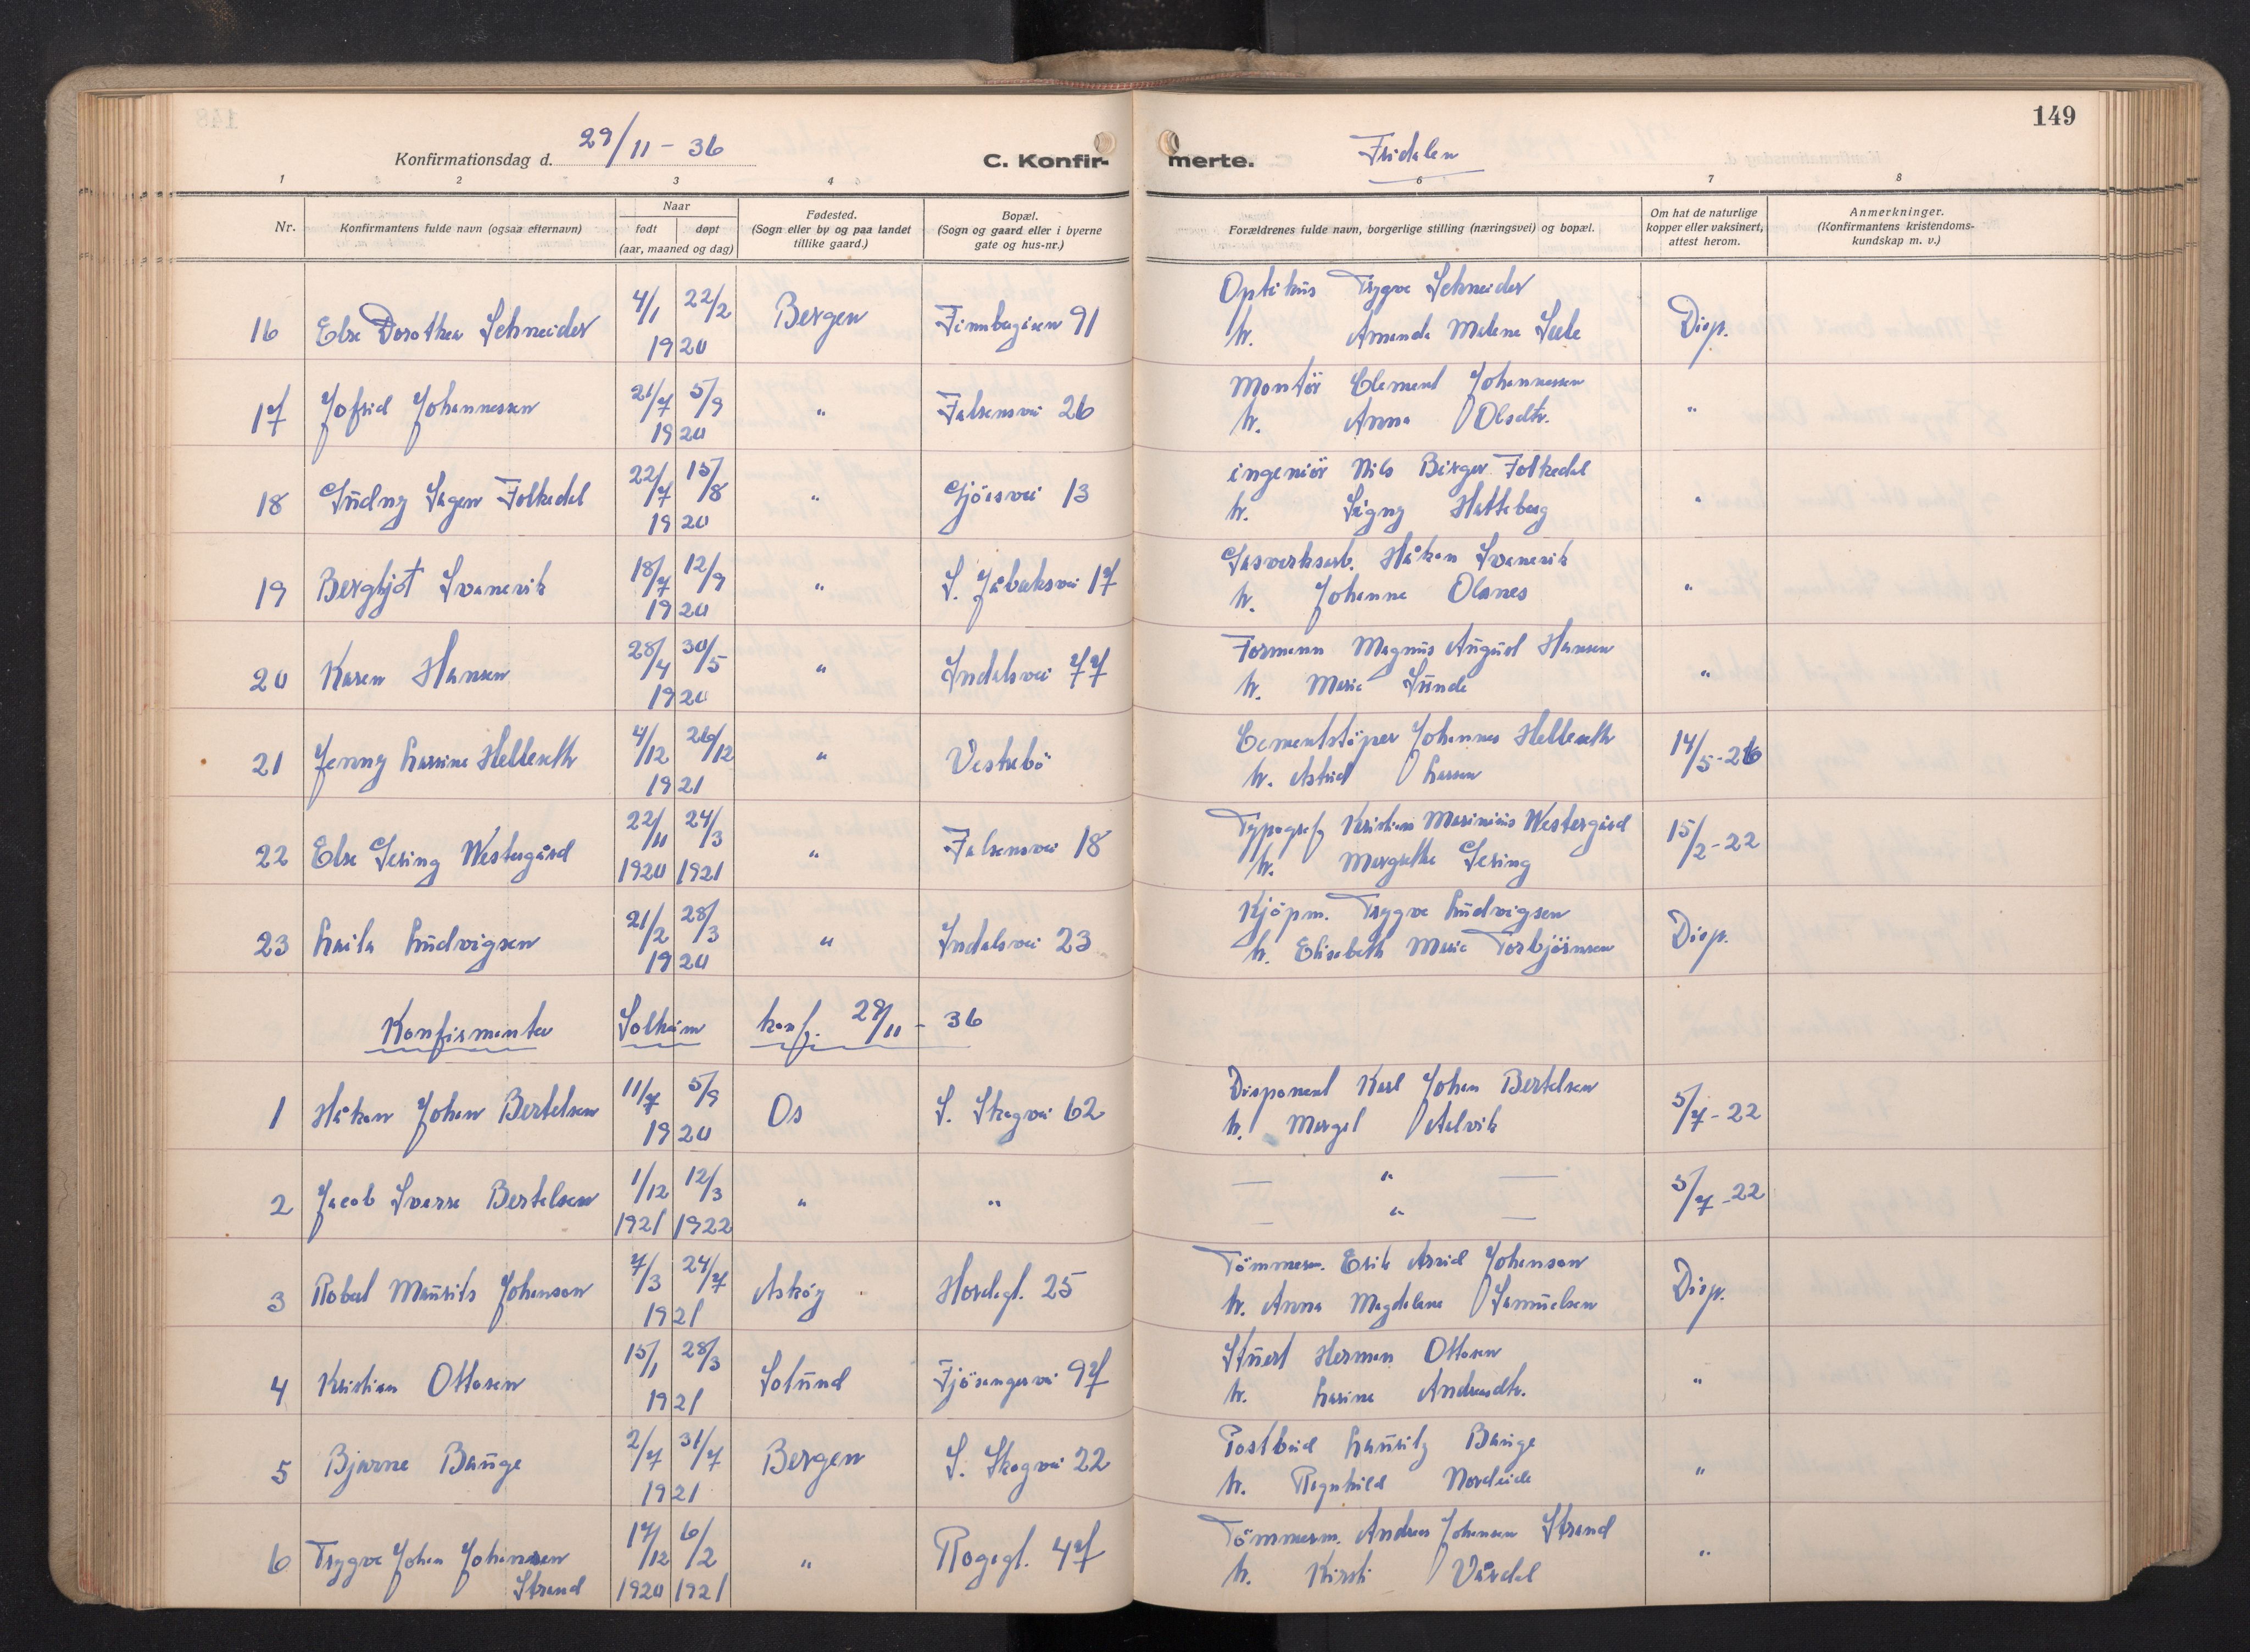 149
Konfirmationsdag d. 29/11 - 36
C. Konfir- merte. Fridalen
1 2 3 4 5 6 7 8
Nr.
Konfirmantens fulde navn (ogsaa efternavn)
Naar
født døpt
(aar, maaned og dag)
Fødested.
(Sogn eller by og paa landet
tillike gaard.)
Bopæl.
(Sogn og gaard eller i byerne
gate og hus-nr.)
Forældrenes fulde navn, borgerlige stilling (næringsvei) og bopæl.
Om hat de naturlige
kopper eller vaksinert,
attest herom.
Anmerkninger.
(Konfirmantens kristendoms-
kundskap m. v.)
Optikus Trygve Schneider
16 Else Dorothea Schneider 4/1 22/2 1920 Bergen Finnbergåsen 91 Disp.
h. Amanda Malene Seele
Montör Clement Johannessen
17 Jofrid Johannessen 21/7 5/9 1920 " Falsensvei 26 "
h. Anna Olsdtr.
ingeniör Nils Birger Folkedal
18 Gudny Sagen Folkedal 22/7 15/8 1920 " Gjöesvei 13 "
h. Signy Hatteberg
Gasverksarb. Håkon Svanevik
19 Bergljot Svanevik 18/7 12/9 1920 " S. Jåbæksvei 17 "
h. Johanne Olsnes
Formann Magnus August Hansen
20 Karen Hansen 28/4 30/5 1920 " Indalsvei 77 "
h. Marie Sunde
Cementstöper Johannes Helleseth
21 Jenny Larsine Helleseth 4/12 26/12 1921 " Vestrebö 14/5-26
h. Astrid Larsen
Typograf Kristian Marinius Westergård
22 Else Gering Westergård 22/11 1920 24/3 1921 " Falsensvei 18 15/2-22
h. Margrethe Gering
Kjöpm. Trygve Ludvigsen
23 Laila Ludvigsen 21/2 28/3 1920 " Indalsvei 23 Disp.
h. Elisabeth Marie Torbjörnsen
Konfirmanter Solheim konf. 29/11 - 36
Disponent Karl Johan Bertelsen
1 Håkon Johan Bertelsen 11/7 5/9 1920 Os S. Skogvei 62 5/7-22
h. Margit Aalvik
2 Jacob Sverre Bertelsen 1/12 1921 12/3 1922 " " — " — 5/7-22
— " —
Tömmerm. Erik Arvid Johanson
3 Robert Maurits Johanson 7/3 24/7 1921 Askøy Hordagt. 25 Disp.
h. Anna Magdalena Samuelsen
Stuert Herman Ottosen
4 Kristian Ottosen 15/1 28/3 1921 Solund Fjösangervei 97 "
h. Larine Andreasdtr.
Postbud Lauritz Bauge
5 Bjarne Bauge 2/7 31/7 1921 Bergen S. Skogvei 22 "
h. Ragnhild Nordeide
Tömmerm. Andreas Johansen Strand
6 Trygve Johan Johansen
Strand 17/12 1920 6/2 1921 " Rogagt. 47 "
h. Kirsti Vårdal